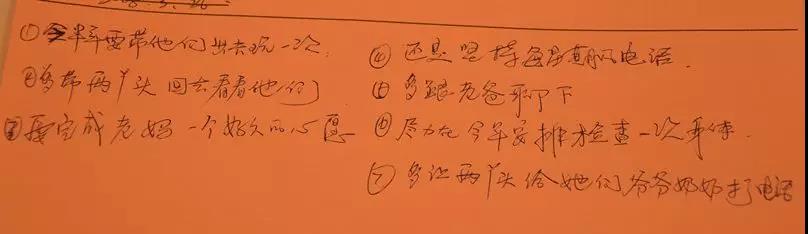 ①半年要带他们出去玩一次.
②多带两丫头回去看看他们
③要完成老妈一个好久的心愿
④还是坚持每电话.
⑤多跟老爸聊下
⑥尽力在今年安排检查一次身体.
⑦多让两丫头给她们爷爷奶奶打电话